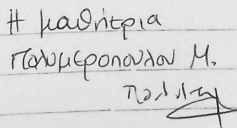 Η μαθήτρια
Πολυμεροπούλου Μ.